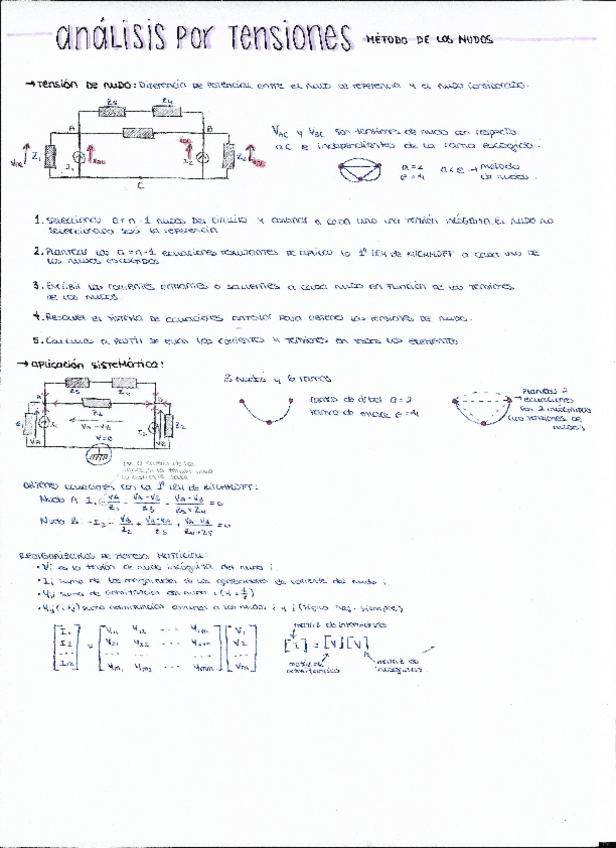 análisis por tensiones MÉTODO DE LOS NUDOS
→ Tensión de nudo: Diferencia de potencial entre el nudo de referencia y el nudo considerado.
Z5 Z4
A B
Z1 Z2
C
VAC y VBC son tensiones de nudo con respecto
a C e independientes de la rama escogida.
a=2 a<e → método
e=4 de nudos.
1. Seleccionar a=n-1 nudos del circuito y asignar a cada uno una tensión incógnita. El nudo no
seleccionado será la referencia
2. Plantear las a=n-1 ecuaciones resultantes de aplicar la 1ª ley de KIRCHHOFF a cada uno de
los nudos escogidos
3. Escribir las corrientes entrantes o salientes a cada nudo en función de las tensiones
de los nudos.
4. Resolver el sistema de ecuaciones anterior para obtener las tensiones de nudo.
5. Calcular a partir de ellas las corrientes y tensiones en todos los elementos.
→ aplicación sistemática:
Z5 Z4
Z3
Z1 VA VA-VB VB Z2
V=0
3 nudos y 6 ramas
ramas de árbol a=2
ramas de enlace e=4
Plantear 2
ecuaciones
con 2 incógnitas
(las tensiones de
nudos)
Obtener ecuaciones con la 1ª ley de KIRCHHOFF:
Nudo A I1 - VA/Z1 - VA-VB/Z3 - VA-VB/Z5+Z4 = 0
Nudo B -I2 - VB/Z2 + VA-VB/Z3 + VA-VB/Z4+Z5 = 0
Reorganizarlas de manera matricial:
• Vi es la tensión de nudo incógnita del nudo i.
• Ii suma de las magnitudes de los generadores de corriente del nudo i.
• Yii suma de admitancias del nudo i (Y=1/Z)
• Yij suma admitancias comunes a los nudos i y j (signo neg. siempre)
matriz de intensidades
[I1 I2 ... Im] = [Y11 Y12 ... Y1m Y21 Y22 ... Y2m ... Ym1 Ym2 ... Ymm] [V1 V2 ... Vm]
[I] = [Y][V]
matriz de admitancias
matriz de incógnitas.